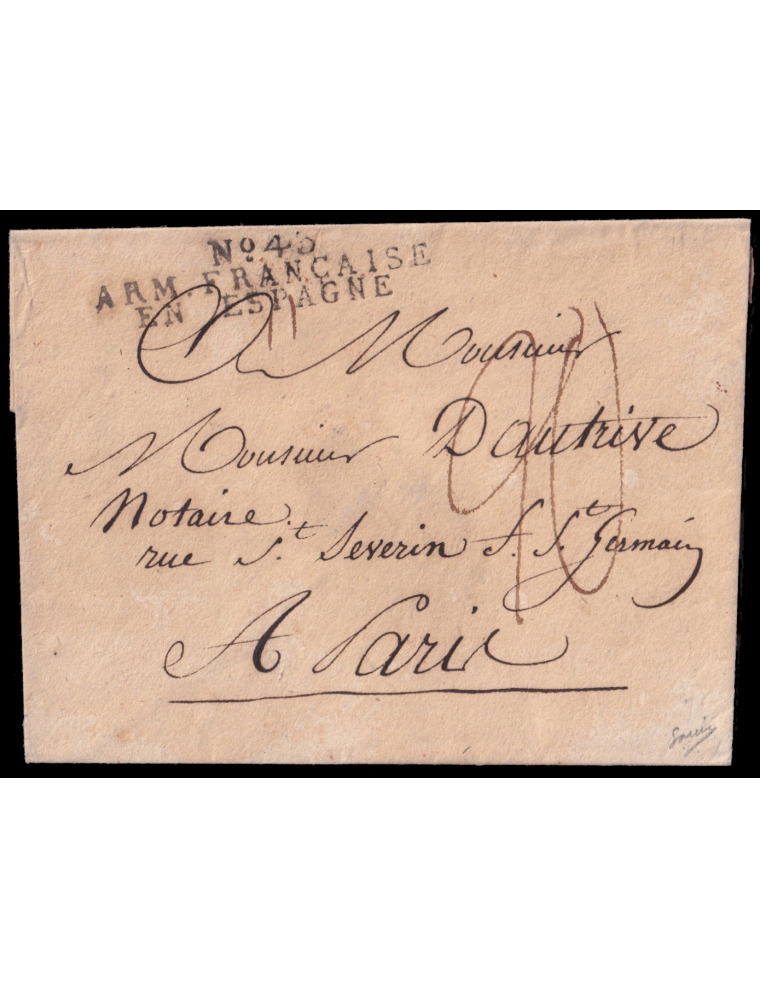 No 45
ARM. FRANÇAISE
EN ESPAGNE
A Monsieur
Monsieur Dautrive
Notaire.
rue S.t Severin f. S.t Germain
A Paris